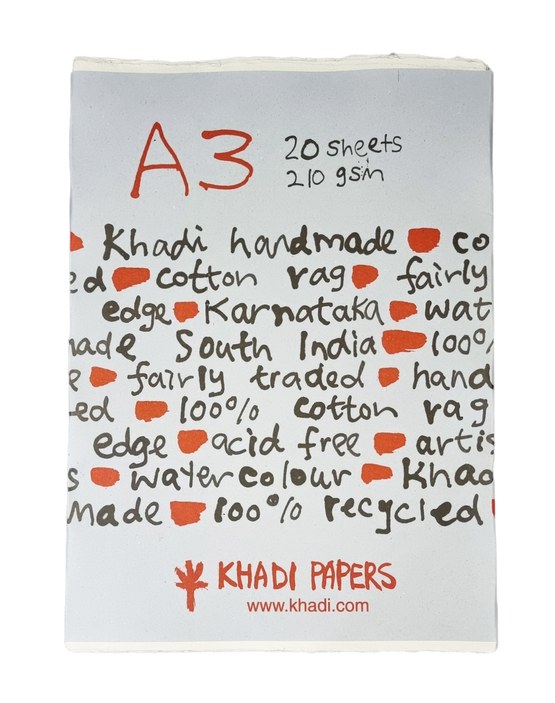 A3
20 sheets
210 gsm
Khadi handmade co
ed cotton rag fairly
edge Karnataka wat
made South India 100%
e fairly traded hand
ed 100% cotton rag
edge acid free artis
s watercolour Khad
made 100% recycled
KHADI PAPERS
www.khadi.com